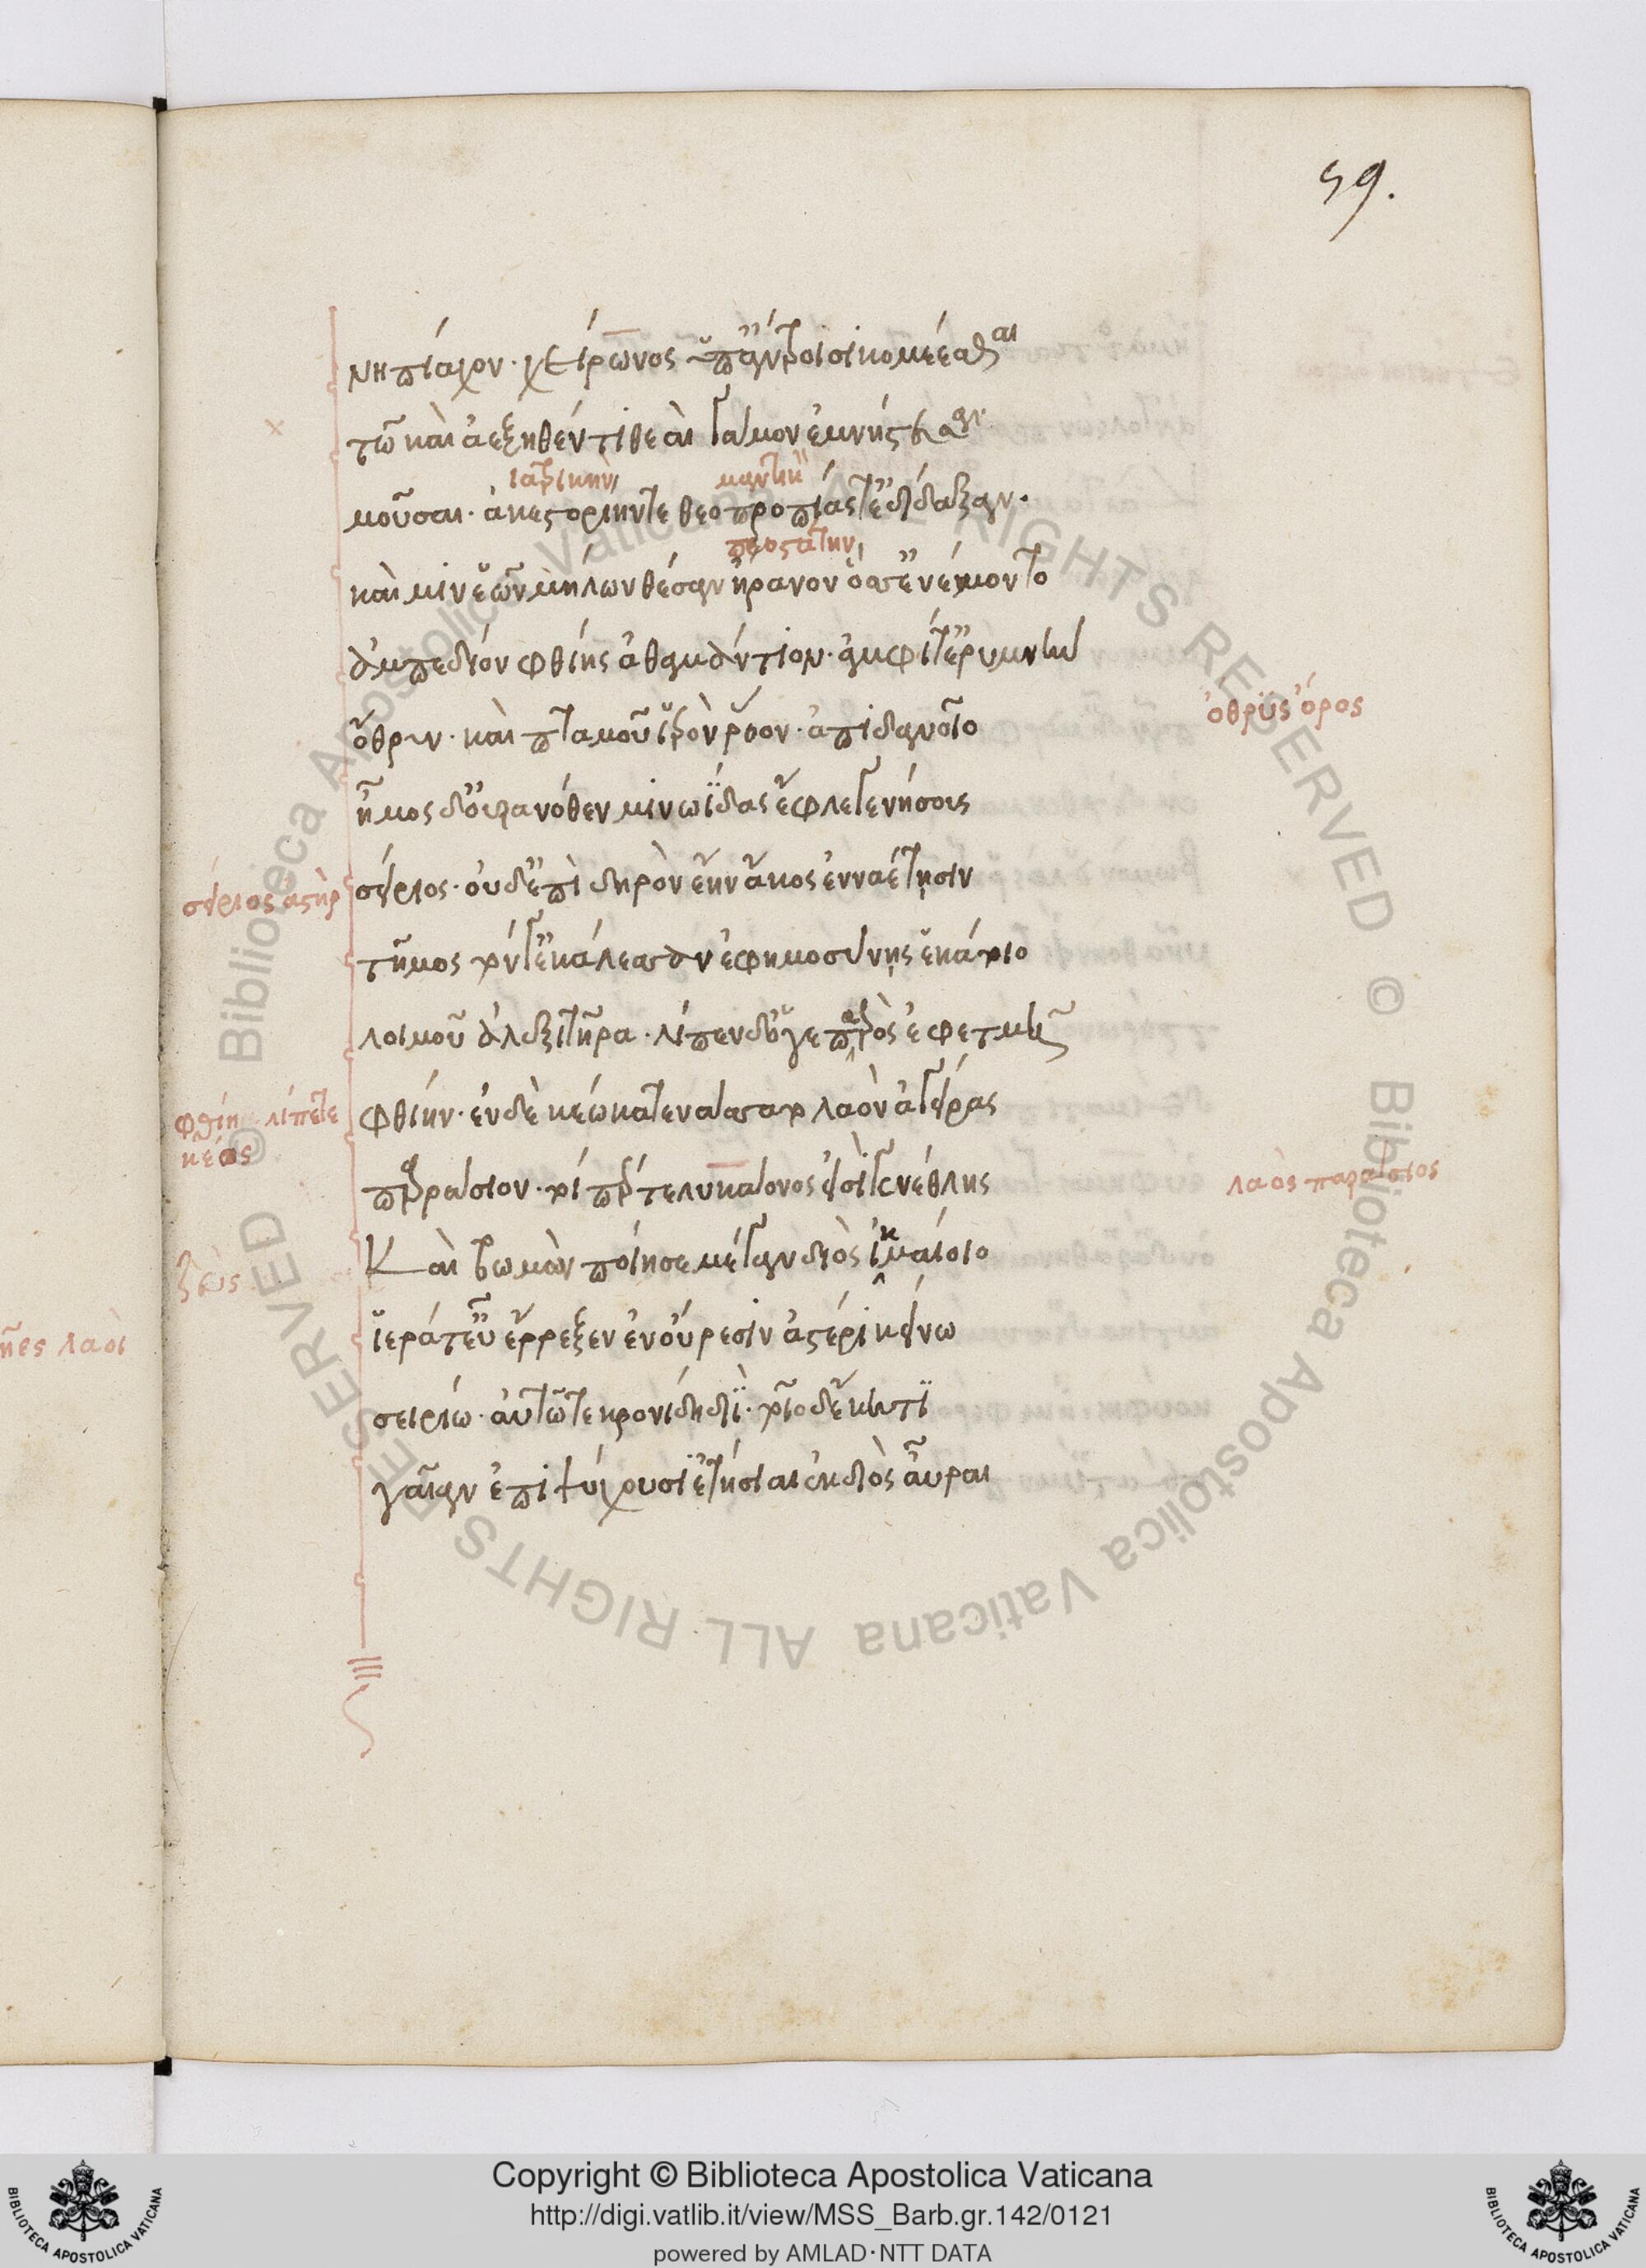 59.
νηπίαχον· χείρωνος ὑπ' ἄντροισι κομέεσθαι
τῶ καὶ ἀεξηθέντι θεαὶ γάμον ἐμνήστευσαν·
ἰατρικὴν μαντικὴν
μοῦσαι· ἀκεστορίην τε θεοπροπίας τ' ἐδίδαξαν·
προστάτην
καὶ μιν ἑῶν μήλων θέσαν ἤρανον ὅσσ' ἐνέμοντο
ἀμπεδίον φθίης ἀθαμάντιον· ἀμφί τ' ἐρυμνὴν
ὄθρυν· καὶ ποταμοῦ ἱρὸν ῥόον· ἀπιδανοῖο
ὀθρὺς ὄρος
ἦμος δ' οὐρανόθεν μινωΐδας ἔφλεγε νήσους
σείριος ἀστὴρ
σείριος· οὐδ' ἐπὶ δηρὸν ἔην ἄκος ἐνναέτησιν
τῆμος τόν γ' ἐκάλεσσαν ἐφημοσύνης ἑκάτοιο
λοιμοῦ ἀλεξητῆρα· λίπεν δ' ὅγε πατρὸς ἐφετμῆ
φθίη λίπετε
κέως
φθίην· ἐν δὲ κέω κατενάσσατο λαὸν ἀγείρας
παρράσιον· τοί πέρ τε λυκάονος εἰσὶ γενέθλης
λαὸς παράσιος
ζεὺς
Καὶ βωμὸν ποίησε μέγαν διὸς ἰκμαίοιο
ἱερά τ' εὖ ἔρρεξεν ἐν οὔρεσιν ἀστέρι κείνω
ῆνες λαοὶ
σειρίω· αὐτῶ τε κρονίδη διΐ· τοῖο δ' ἕκητι
γαῖαν ἐπιψύχουσι ἐτήσιαι ἐκ διὸς αὖραι
© Biblioteca Apostolica Vaticana ALL RIGHTS RESERVED © Biblioteca Apostolica Vaticana ALL RIGHTS RESERVED
Copyright © Biblioteca Apostolica Vaticana
http://digi.vatlib.it/view/MSS_Barb.gr.142/0121
powered by AMLAD·NTT DATA
BIBLIOTECA APOSTOLICA VATICANA
BIBLIOTECA APOSTOLICA VATICANA